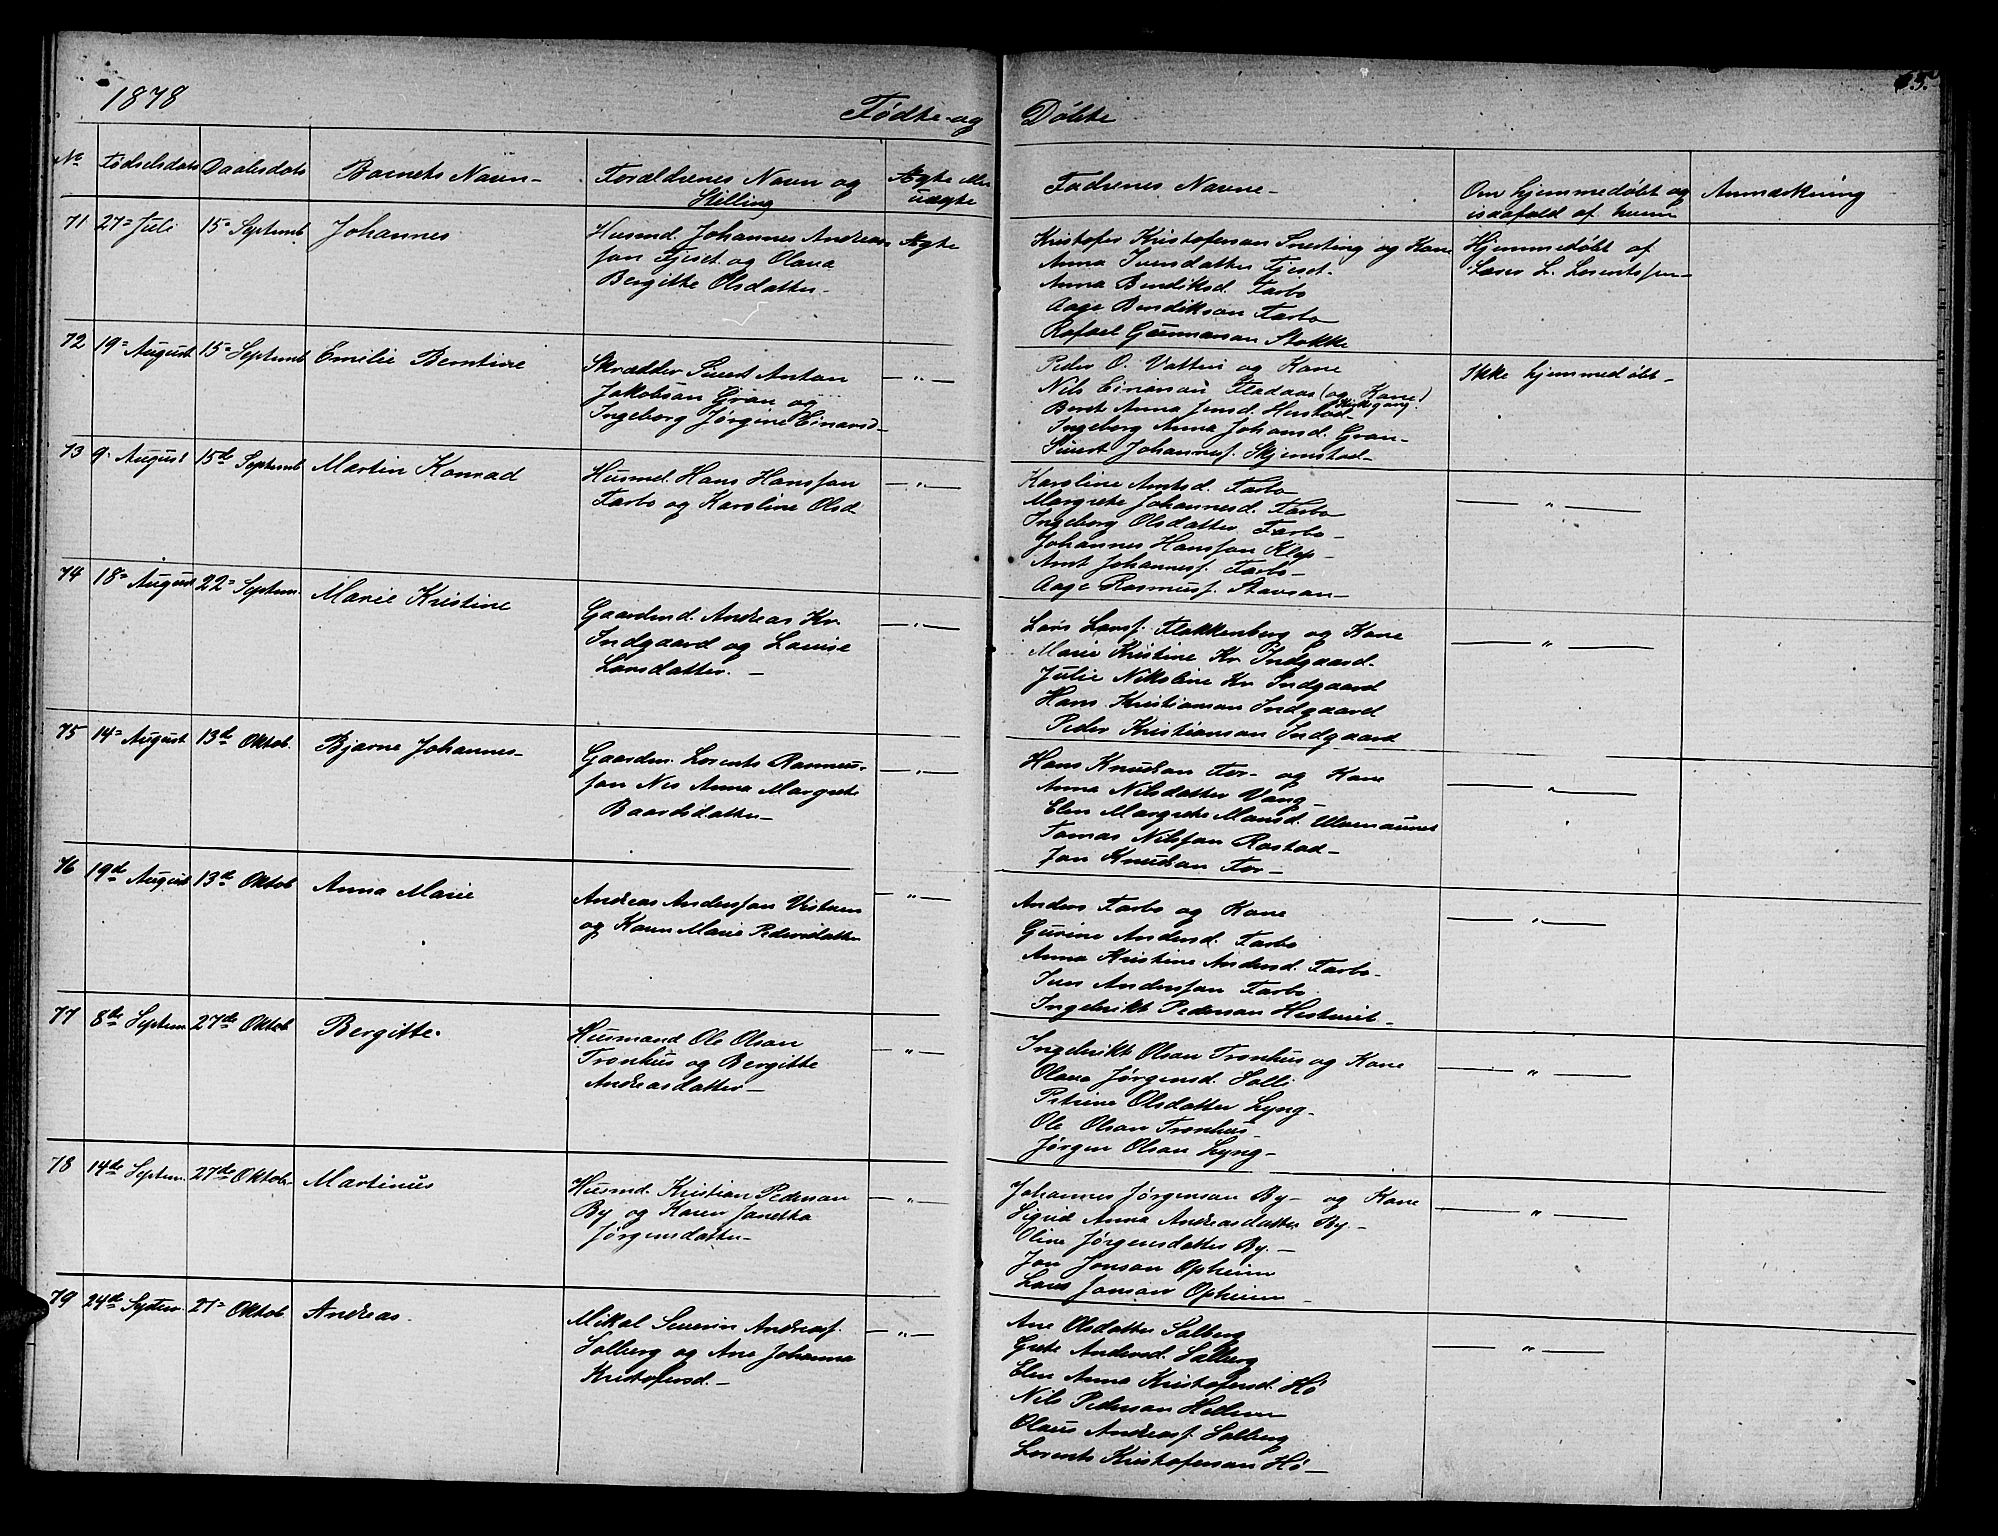 1878 Fødte og Døbte 65.
No Fødselsdato Daabsdato Barnets Navn Forældrenes Navn og Stilling Ægte eller uægte Faddrenes Navne Om hjemmedøbt og isaafald af hvem Anmærkning
71 27= Juli 15= Septemb. Johannes
Husmd. Johannes Andreas
son Fjeset og Olava
Bergitte Olsdatter
Ægte
Kristofer Kristofersan Snesting og Kone
Anna Iversdatter Fjeset
Anna Bendiksd. Farbo
Aage Bendiksan Farbo
Rafael Gunnarsan Stokke
Hjemmedøbt af
Lars L. Lorentssen
72 19= August 15= Septemb Emilie Berntine
Skrædder Sivert Anton
Jakobsan Gran og
Ingeborg Jørgine Einarsd
— " —
Peder O. Vatten og Kone
Nils Einarsan Fladaas (og Kone)
Kirkegang
Beret Anna Jensd. Herstad
Ingeborg Anna Johansd. Gran
Sivert Johannesf. Skjemstad
Ikke hjemmedøbt
73 9. August 15de Septemb Martin Konrad
Husmd. Hans Hansson
Farbo og Karoline Olsd
— " —
Karoline Arntsd. Farbo
Margrete Johannesd. Farbo
Ingeborg Olsdatter Farbo
Johannes Hansson Klep
Arnt Johannesf. Farbo
Aage Rasmusf. Stavsan
— " —
74 18= August 22= Septem. Marie Kristine
Gaardmd. Andreas Kr.
Indgaard og Louise
Larsdatter.
— " —
Lars Larsf. Flakkenberg og Kone
Marie Kristine Kr. Indgaard
Julie Nikoline Kr. Indgaard
Hans Kristiansan Indgaard
Peder Kristiansan Indgaard
— " —
75 14= August 13de Oktob. Bjarne Johannes
Gaardm. Lorents Rasmus
son Nes Anna Margrete
Baardsdatter
— " —
Hans Knudsan For og Kone
Anna Nilsdatter Vang
Elen Margrete Monsd.
Tomas Nilsson Rostad
Jon Knudsan For
— " —
76 19de August 13de Oktob Anna Marie
Andreas Andersson Vistven
og Karen Marie Pedersdatter
— " —
Anders Farbo og Kone
Gurine Andersd. Farbo
Anna Kristine Andersd. Farbo
Iver Andersson Farbo
Ingebrikt Pedersan
— " —
77 8de Septem. 27de Oktob Bergitte.
Husmand Ole Olsan
Tronhus og Bergitte
Andreasdatter
— " —
Ingebrikt Olsan Tronhus og Kone
Olava Jørgensd. Salli
Petrine Olsdatter Lyng
Ole Olsan Tronhus
Jørgen Olsan Lyng
— " —
78 14de Septem. 27de Oktob. Martinus
Husmd. Kristian Pedersan
By og Karen Janetta
Jørgensdatter
— " —
Johannes Jørgensan By og Kone
Sigrid Anna Andreasdatter By
Oline Jørgensdatter By.
Jon Jonsan Opheim
Lars Jonsan Opheim
— " —
79 24de Septem. 27= Oktob Andreas.
Mikal Severin Andreasf.
Salberg og Ane Johanna
Kristofersd.
— " —
Ane Olsdatter Salberg
Grete Andersd. Salberg
Elen Anna Kristofersd. Hø
Nils Pedersan Hellem
Olaus Andreasf. Salberg
Lorents Kristofersan Hø
— " —